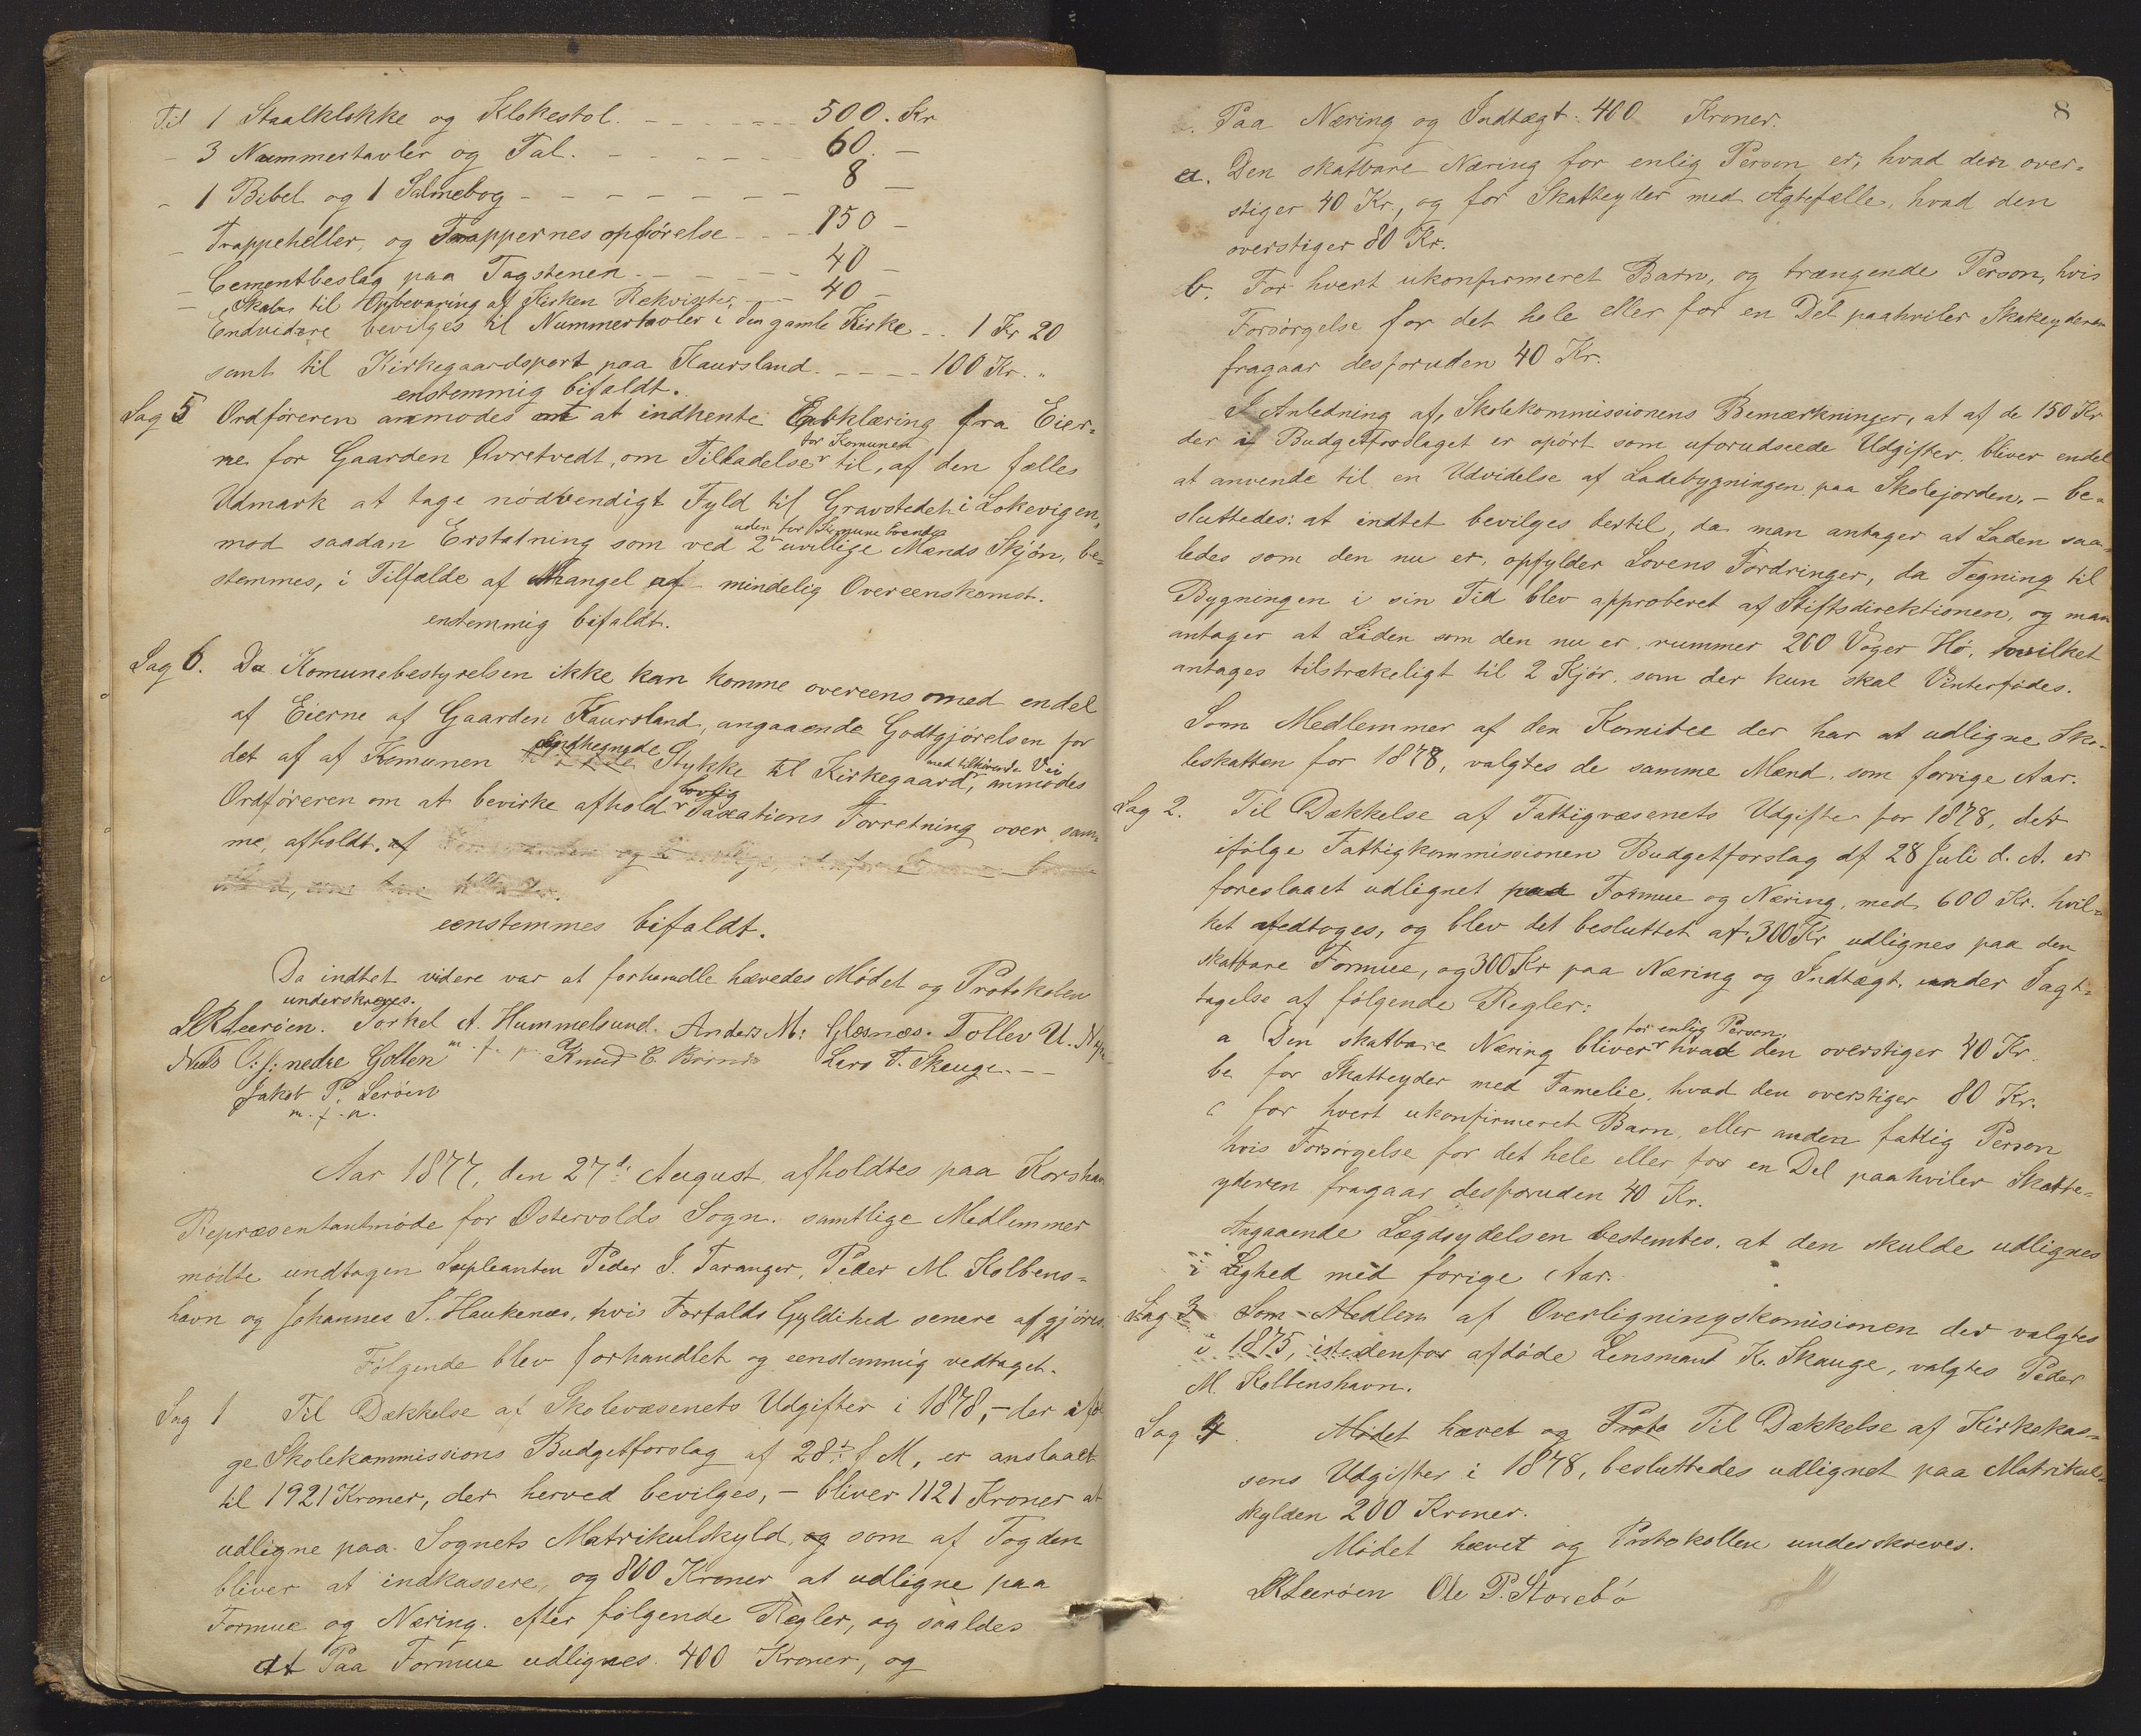 Til 1 Staalklokke og Klokestol. - - - - - - 500. Kr
- 3 Nummertavler og Tal. - - - - - - 60. -
- 1 Bibel og 1 Salmebog - - - - - - - 8 -
- Trappeheller, og Trappernes opførelse - - - 150 -
- Cementbeslag paa Tagstenen. - - - - - 40 -
- Skab til Opbevaring af Kirken Rekvisiter, - - 40 -
Endvidere bevilges til Nummertavler i den gamle Kirke - - 1 Kr 20
samt til Kirkegaardsport paa Kaursland. - - - - 100 Kr. "
enstemmig bifaldt.
Sag 5 Ordføreren anmodes om at indhente Erklæring fra Eier-
ne for Gaarden Øvretvedt, om Tilladelse for Komunen til, af den fælles
Udmark at tage nødvendigt Fyld til Gravstedet i Lokevigen,
mod saadan Erstatning som ved 2 uden for Komune boende uvillige Mænds Skjøn, be-
stemmes, i Tilfælde af Mangel af mindelig Overeenskomst.
enstemmig bifaldt.
Sag 6. Da Komunebestyrelsen ikke kan komme overeens med endel
af Eierne af Gaarden Kaursland, angaaende Godtgjørelsen for
det af af Komunen indhegnede Stykke til Kirkegaard, med tilhørende Vei anmodes
Ordføreren om at bevirke afhold lovlig Taxations Forretning over sam-
me, afholdt. af
eenstemmes bifaldt.
Da indtet videre var at forhandle hævedes Mødet og Protokolen
underskreves.
LRLerøen. Torkel A. Hummelsund. Anders M: Glæsnæs. Tollev U.
Nils O: s: nedre Golten m. f. p. Knud E. Lars T. Skauge. - -
Jakob P. Lerøen
m. f. p.
Aar 1877, den 27d: August afholdtes paa Korshavn
Repræsentantmøde for Østervolds Sogn. samtlige Medlemmer
mødte undtagen Supleanten Peder J. Taranger, Peder M. Kolbens-
havn og Johannes S. Haukenæs, hvis Forfalds Gyldihed senere afgjøres.
Følgende blev forhandlet og eenstemmig vedtaget.
Sag 1 Til Dækkelse af Skolevæsenets Udgifter i 1878, - der iføl
ge Skolekommissions Budgetforslag af 28de f M, er anslaaet
til 1921 Kroner, der herved bevilges, - bliver 1121 Kroner at
udligne paa Sognets Matrikulskyld, og som af Fogden
bliver at indkassere, og 800 Kroner at udligne paa
Formue og Næring. efter følgende Regler, og saaldes
at Paa Formue udlignes 400 Kroner, og
8
Paa Næring og Indtægt: 400 Kroner.
a. Den skatbare Næring for enlig Person er, hvad den over-
stiger 40 Kr., og for Skatteyder med Ægtefælle, hvad den
overstiger 80 Kr.
b. For hvert ukonfirmeret Barn, og trængende Person, hvis
Forsørgelse for det hele eller for en Del paahviler Skateyderen
fragaar desforuden 40 Kr.
I Anledning af, Skolekommissionens Bemærkninger, at af de 150 Kr
der i Budgetforslaget er opørt som uforudseede Udgifter bliver endel
at anvende til en Udvidelse af Ladebygningen paa Skolejorden, - be-
sluttedes: at indtet bevilges dertil, da man antager at Laden saa-
ledes som den nu er, opfylder Lovens Fordringer, da Tegning til
Bygningen i sin Tid blev approberet af Stiftsdirektionen, og man
antager at Laden som den nu er rummer 200 Voger Hø, hvilket
antages tilstrækeligt til 2 Kjør, som der kun skal Vinterfødes.
Som Medlemmer af den Komitee der har at udligne Sko-
leskatten for 1878, valgtes de samme Mænd, som forvige Aar.
Sag 2. Til Dækkelse af Fattigvæsenets Udgifter for 1878, der
ifølge Fattigkommissionen Budgetforslag df 28 Juli d. A. er
foreslaaet udlignet paa Formue og Næring, med 600 Kr. hvil-
ket vedtoges, og blev det besluttet at 300 Kr udlignes paa den
skatbare Formue, og 300 Kr paa Næring og Indtægt, under Iagt-
tagelse af følgende Regler:
a Den skatbare Næring bliver for enlig Person hvad den overstiger 40 Kr.
b for Skatteyder med Famelie, hvad den overstiger 80 Kr.
c for hvert ukonfirmeret Barn, eller anden fattig Person
hvis Forsørgelse for det hele eller for en Del paahviler Skatte-
yderen fragaar desforuden 40 Kr.
Angaaende Lægdsydelsen bestemtes, at den skulde udlignes
i Lighed med forige Aar.
Sag 3 Som Medlem af Overligningskomisionen der valgtes
i 1875, istedenfor afdøde Lensmand K. Skauge, valgtes Peder
M. Kolbenshavn.
Sag 4. Mødet hævet og Proto Til Dækkelse af Kirkekas-
sens Udgifter i 1878, besluttedes udlignet paa Matrikul-
skylden 200 Kroner.
Mødet hævet og Protokollen underskreves.
LRLerøen Ole P. Storebø